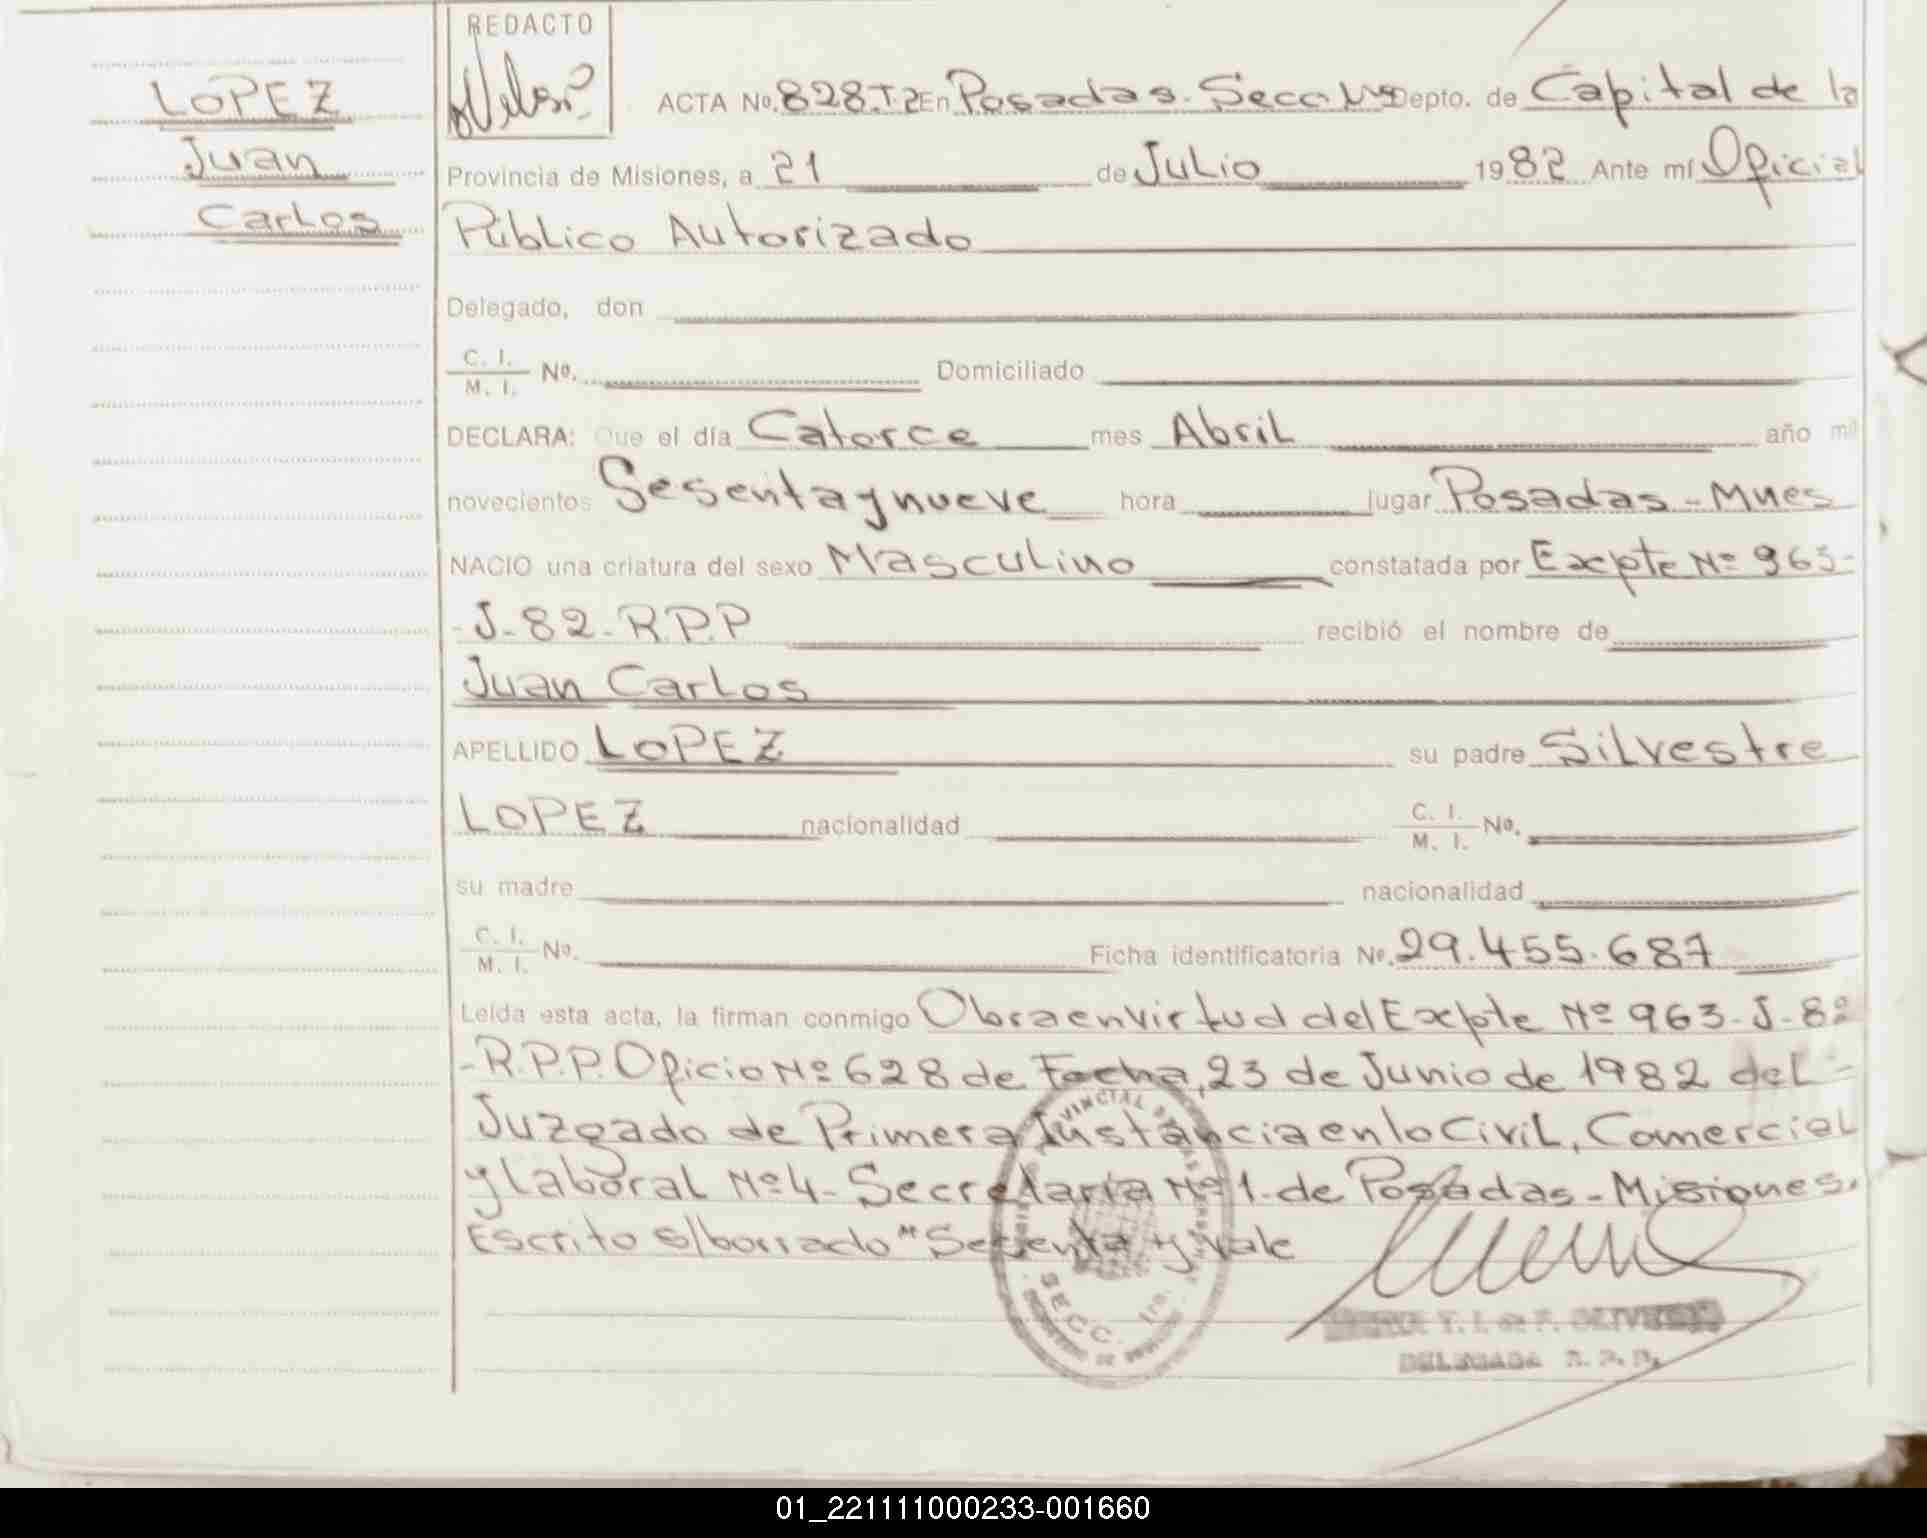 LOPEZ
Juan
Carlos
REDACTO
ACTA No. 828.T-2 En Posadas. Secc. Depto. de Capital de la
Provincia de Misiones, a 21 de Julio 1982 Ante mí Oficial
Público Autorizado
Delegado, don
C. I. / M. I. No. Domiciliado
DECLARA: Que el día Catorce mes Abril año mil
novecientos Sesenta y nueve hora lugar Posadas - Mnes
NACIO una criatura del sexo Masculino constatada por Excpte Nº 963-
-J-82-R.P.P recibió el nombre de
Juan Carlos
APELLIDO LOPEZ su padre Silvestre
LOPEZ nacionalidad C. I. / M. I. No.
su madre nacionalidad
C. I. / M. I. No. Ficha identificatoria No. 29.455.687
Leída esta acta, la firman conmigo Obra en virtud del Excpte Nº 963-J-82
-R.P.P. Oficio Nº 628 de Fecha, 23 de Junio de 1982 del-
Juzgado de Primera Instancia en lo Civil, Comercial
y Laboral Nº 4- Secretaría Nº 1- de Posadas - Misiones.
Escrito s/borrado " y Vale
SECC. 1ra.
01_221111000233-001660